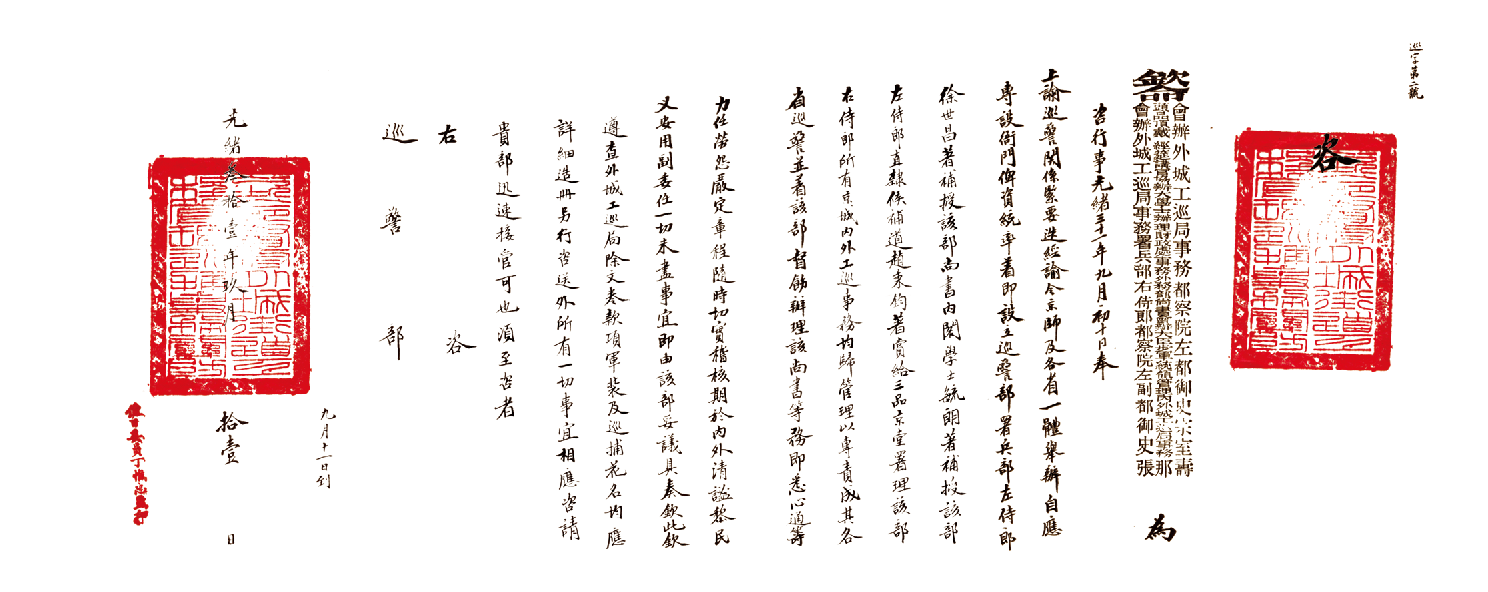 巡字第一號
咨
欽命
會辦外城工巡局事務都察院左都御史宗室壽
會辦外城工巡局事務署兵部右侍郎都察院左副都御史張
為
咨行事光緒三十一年九月初十日奉
上諭巡警關係緊要迭經諭令京師及各省一體舉辦自應
專設衙門俾資統率著即設立巡警部署兵部左侍郎
徐世昌著補授該部尚書內閣學士毓朗著補授該部
左侍郎直隸候補道趙秉鈞著賞給三品京堂署理該部
右侍郎所有京城內外工巡事務均歸管理以專責成其各
省巡警並著該部督飭辦理該尚書等務即悉心通籌
力任勞怨嚴定章程隨時切實稽核期於內外清謐黎民
又安用副委任一切未盡事宜即由該部妥議具奏欽此欽
遵查外城工巡局除文案款項軍裝及巡捕花名均應
詳細造冊另行咨送外所有一切事宜相應咨請
貴部迅速接管可也須至咨者
右 咨
巡警部
九月十一日到
光緒叁拾壹年玖月拾壹日